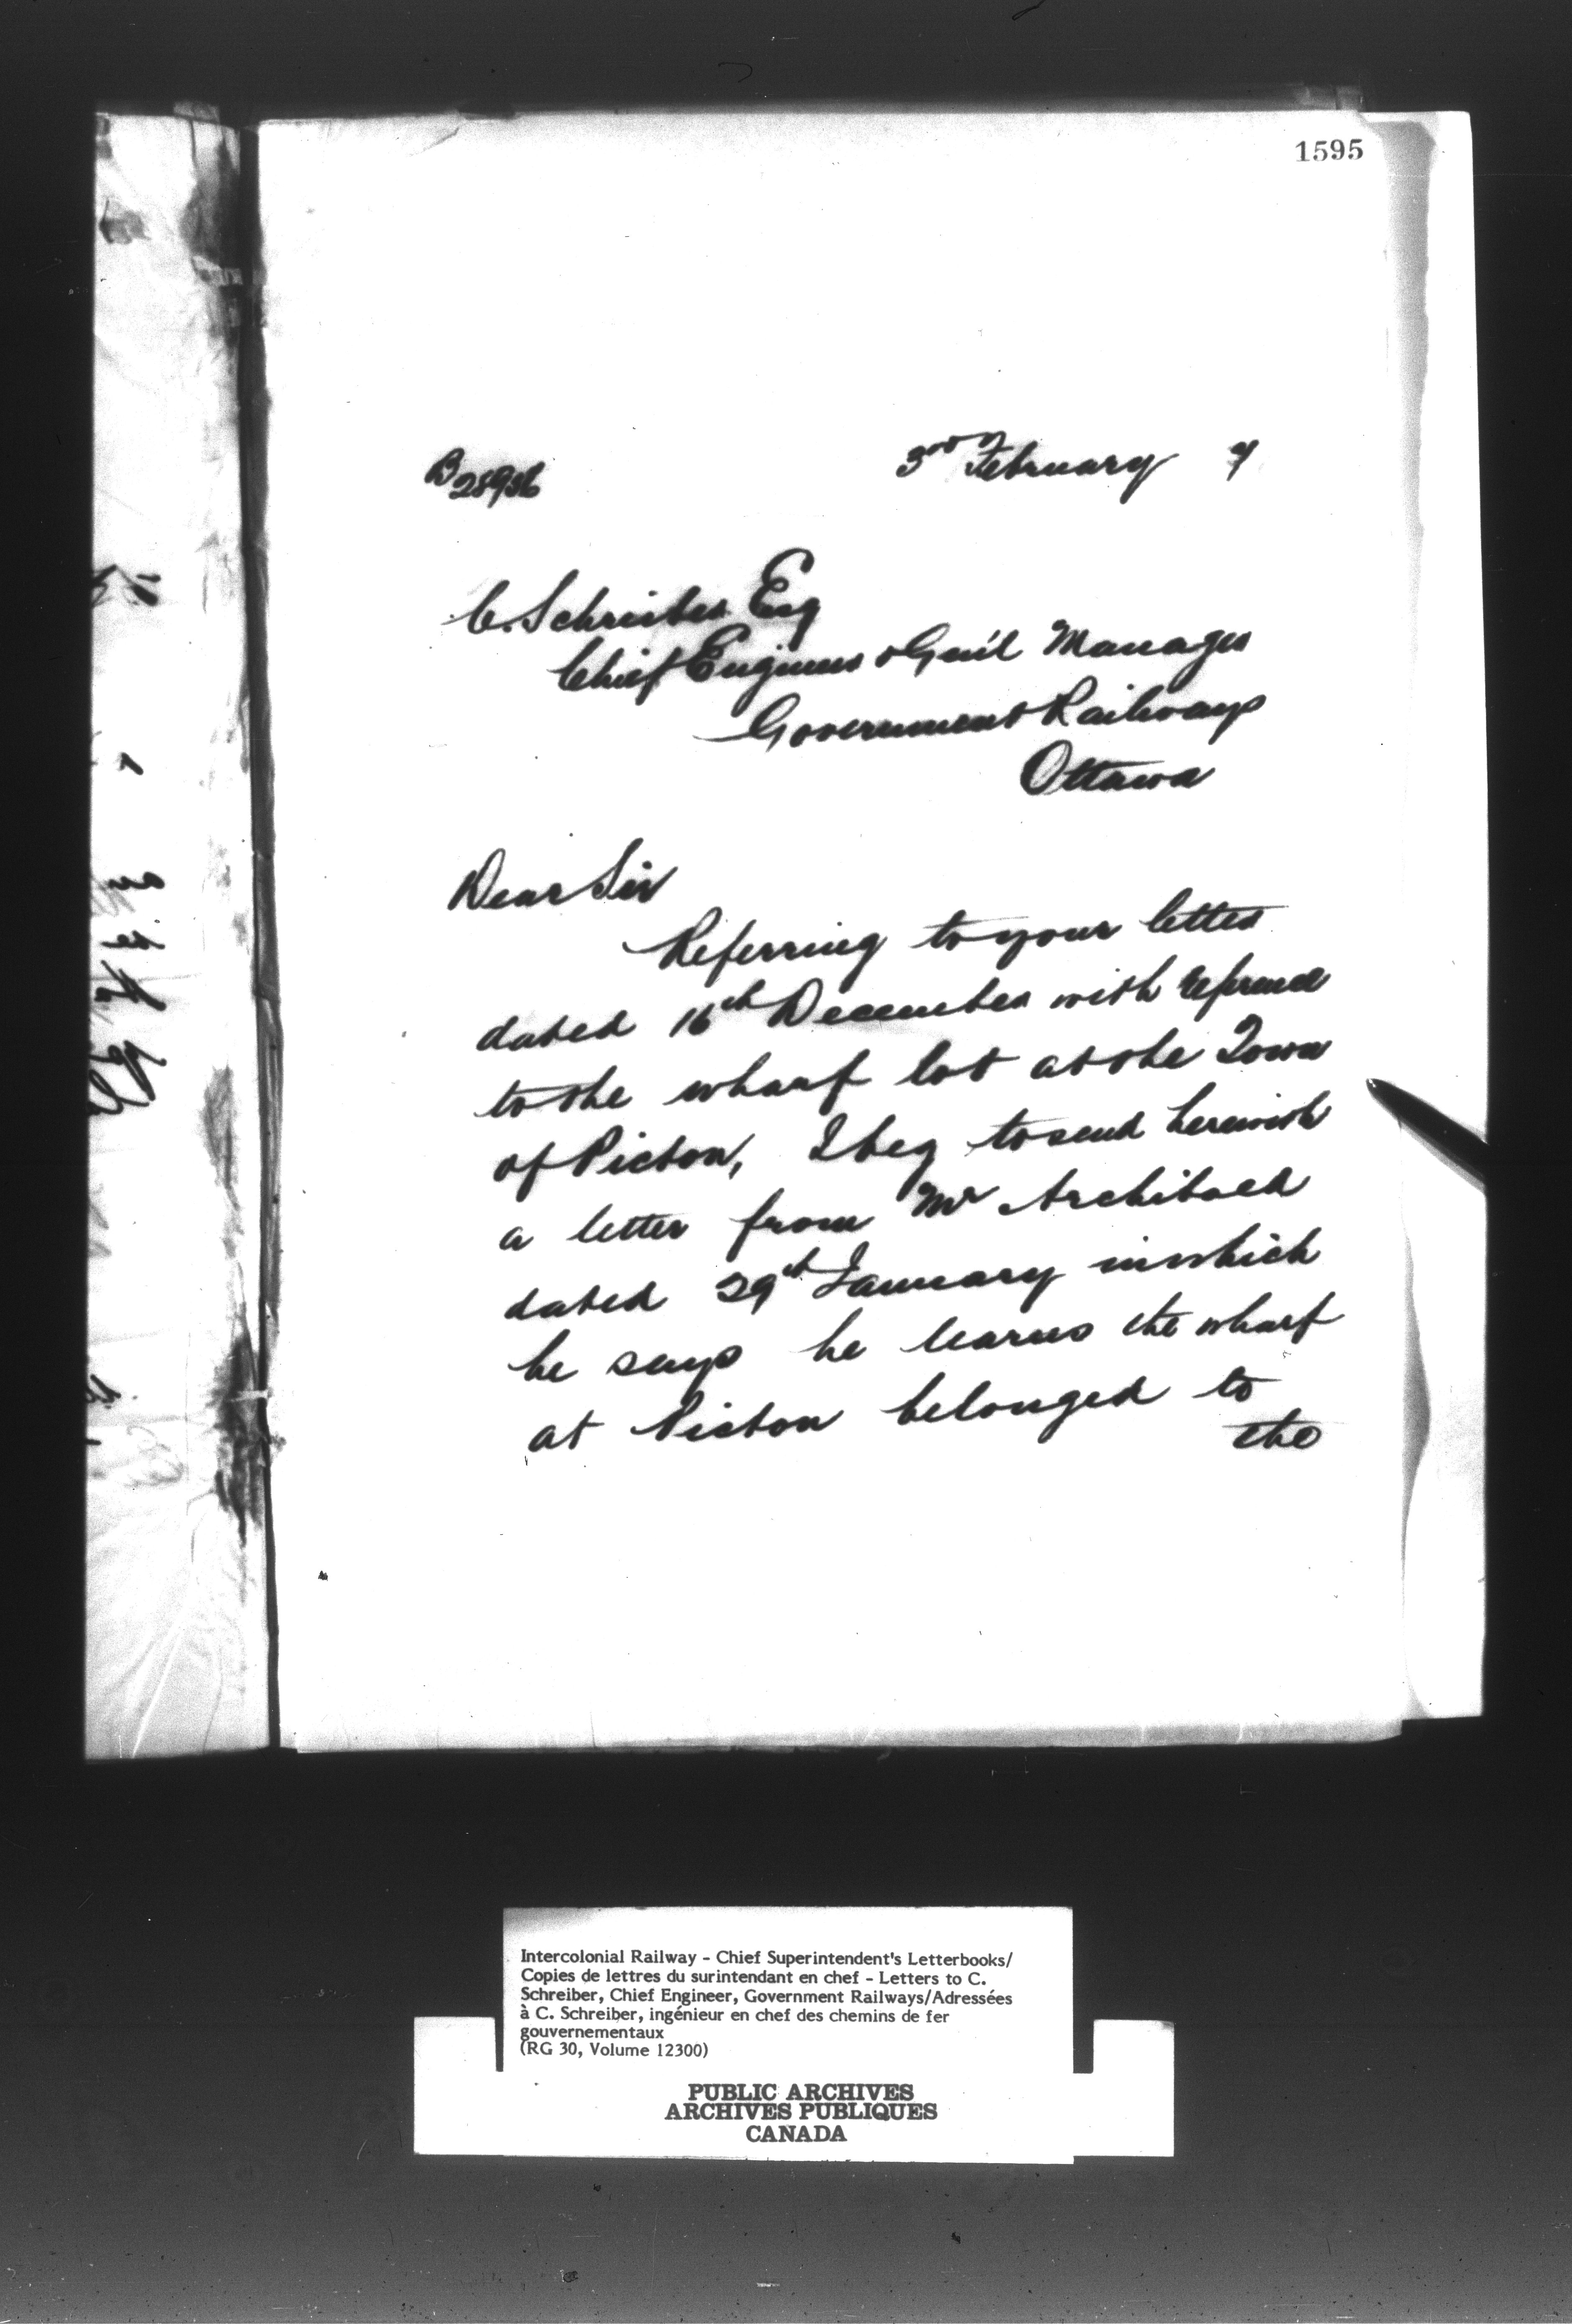 1595
B 28936
3rd February 7
C. Schreiber Esq
Chief Engineer & Gen'l Manager
Government Railways
Ottawa
Dear Sir
Referring to your letter
dated 16th December with reference
to the wharf lot at the Town
of Pictou, I beg to send herewith
a letter from Mr Archibald
dated 29th January in which
he says he learns the wharf
at Pictou belonged to
the
Intercolonial Railway - Chief Superintendent's Letterbooks/
Copies de lettres du surintendant en chef - Letters to C.
Schreiber, Chief Engineer, Government Railways/Adressées
à C. Schreiber, ingénieur en chef des chemins de fer
gouvernementaux
(RG 30, Volume 12300)
PUBLIC ARCHIVES
ARCHIVES PUBLIQUES
CANADA